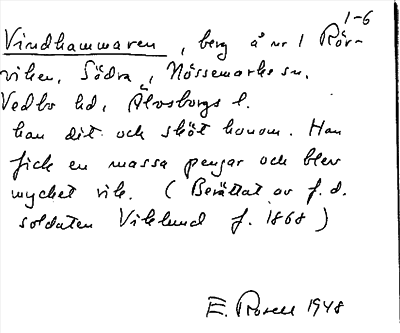 1-6
Vindhammaren, berg å nr 1 Rör-
viken, Södra, Nössemarks sn.
Vedbo hd, Älvsborgs l.
han dit och sköt honom. Han
fick en massa pengar och blev
mycket rik. (Berättat av f.d.
soldaten Viklund f. 1868)
E. Rosell 1948